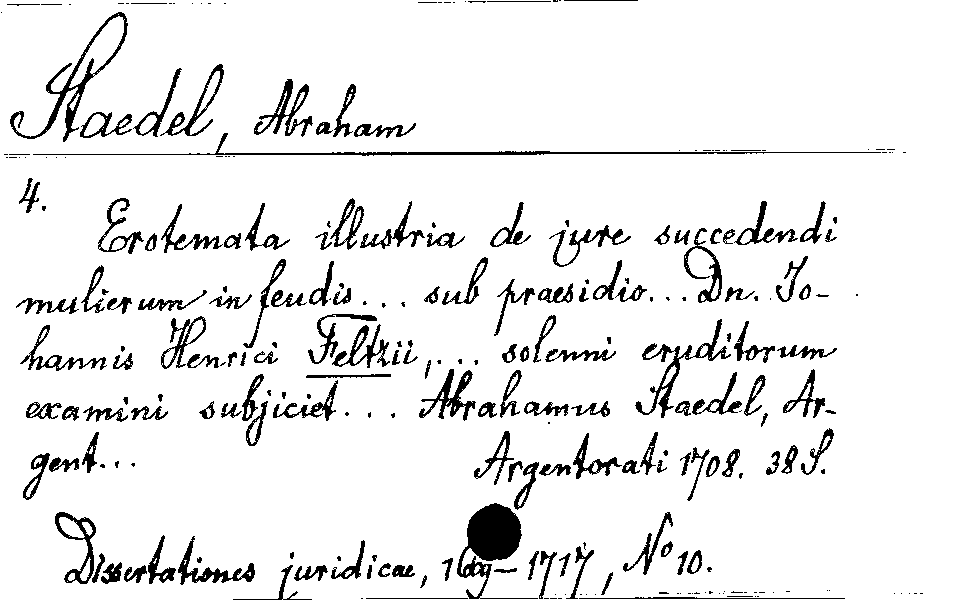 Staedel, Abraham
4.
Erotemata illustria de jure succedendi
mulierum in feudis... sub praesidio... Dn. Jo-
hannis Henrici Feltzii,... solenni eruditorum
examini subjiciet... Abrahamus Staedel, Ar-
gent...
Argentorati 1708. 38 S.
Dissertationes juridicae, 1717, No 10.